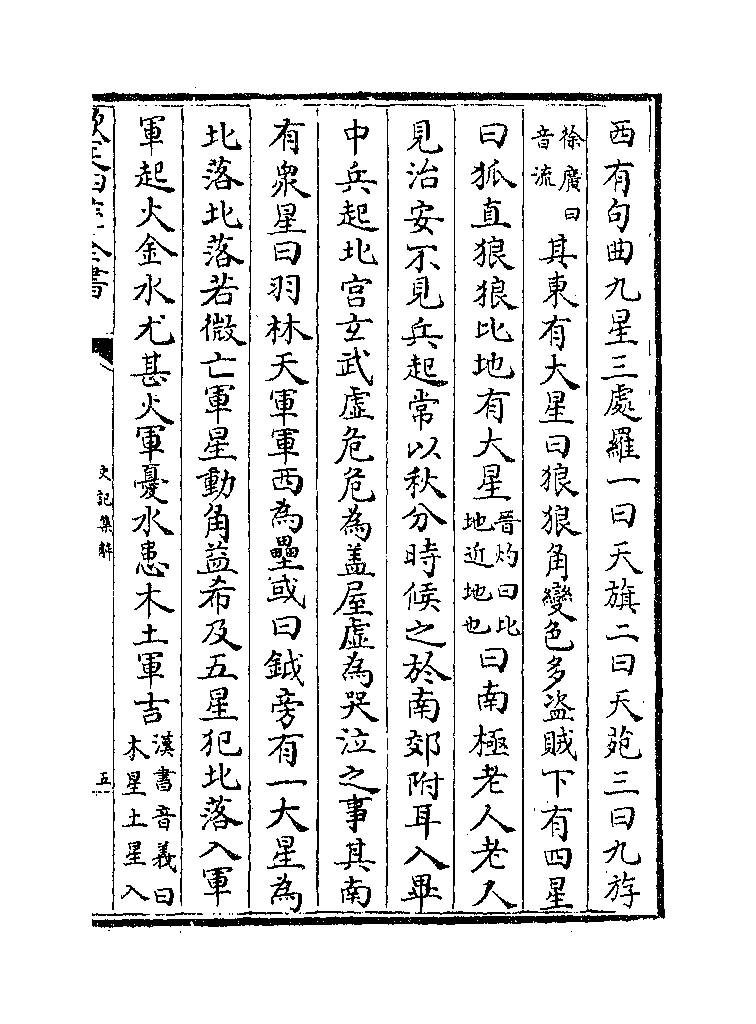 西有句曲九星三處羅一曰天旗二曰天苑三曰九斿
徐廣曰音流其東有大星曰狼狼角變色多盜賊下有四星
曰狐直狼狼比地有大星晉灼曰比地近地也曰南極老人老人
見治安不見兵起常以秋分時候之於南郊附耳入畢
中兵起北宮玄武虛危危為蓋屋虛為哭泣之事其南
有衆星曰羽林天軍軍西為壘或曰鉞旁有一大星為
北落北落若微亡軍星動角益希及五星犯北落入軍
軍起火金水尤甚火軍憂水患木土軍吉漢書音義曰木星土星入
欽定四庫全書
史記集解
五